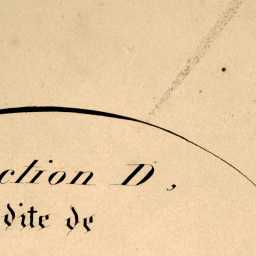 ction D,
dite de